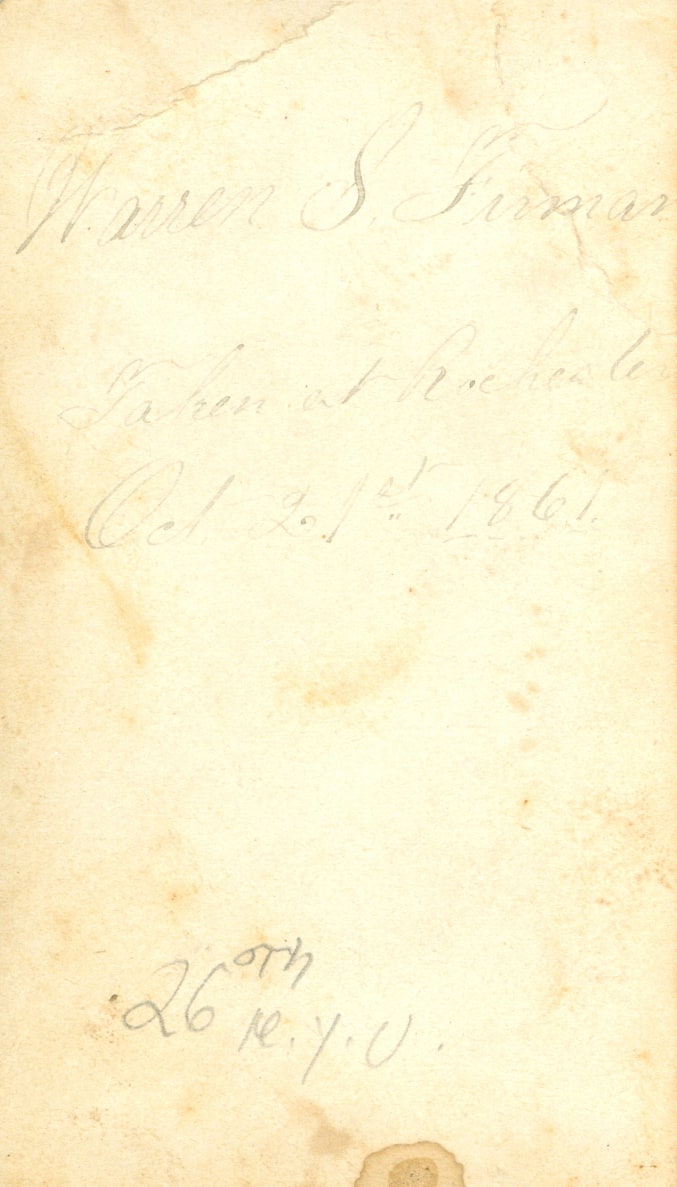 Warren S. Firman
Taken at Rochester
Oct. 21st 1861.
26 th
N.Y.V.